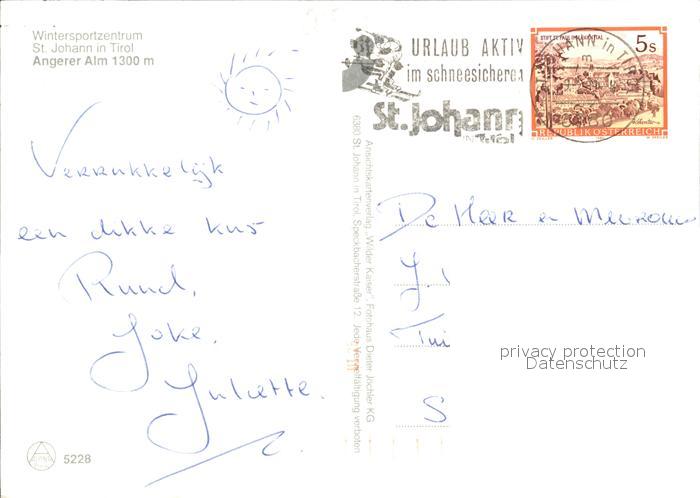 Wintersportzentrum
St. Johann in Tirol
Angerer Alm 1300 m
Verrukkelijk
een dikke kus
Ruud,
Joke,
Juliette.
5228
Ansichtskartenverlag „Wilder Kaiser“, Fotohaus Dieter Jöchler KG
6380 St. Johann in Tirol, Speckbacherstraße 12. Jede Vervielfältigung verboten
URLAUB AKTIV
im schneesicheren
St. Johann
IN TIROL
STIFT ST. PAUL IM LAVANTTAL
5 S
REPUBLIK ÖSTERREICH
JOHANN in TIROL
De Heer en Mevrouw
J.
Tui
S
privacy protection
Datenschutz